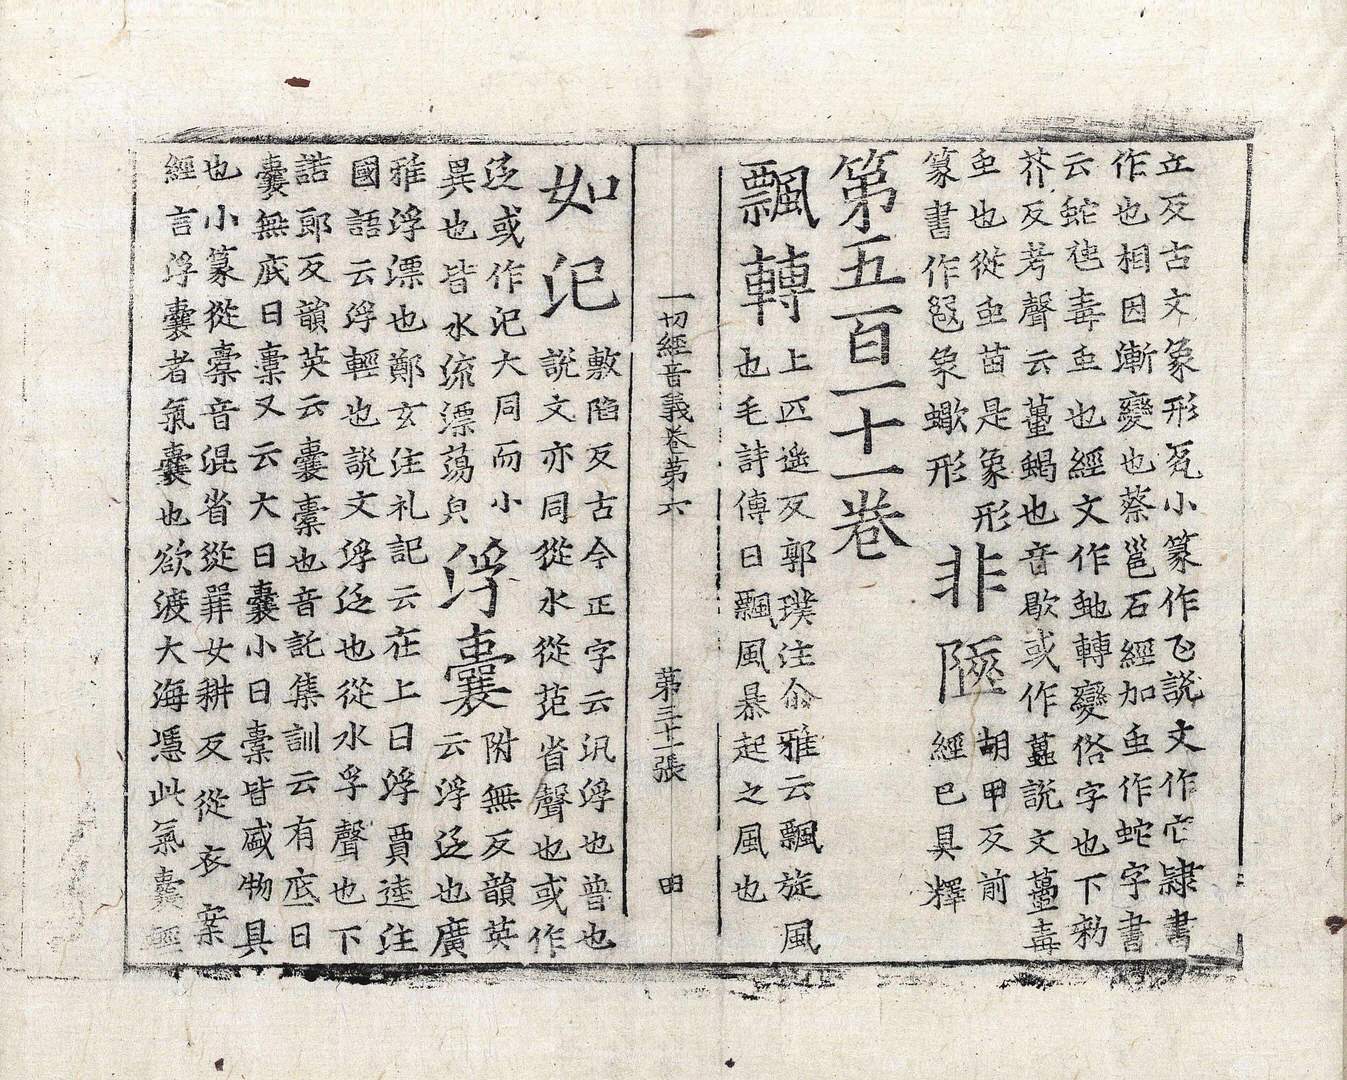 立反古文象形𠒎小篆作飞說文作亡隸書
作也相因漸變也蔡邕石經加虫作蛇字書
云蛇虵毒虫也經文作虵轉變俗字也下勑
芥反考聲云蠆蝎也音歇或作蠆說文蠆毒
虫也從虫萬是象形
篆書作象蠍形
非陿
胡甲反前
經已具釋
第五百一十一卷
飄轉
上匹遙反郭璞注尒雅云飄旋風
也毛詩傳曰飄風暴起之風也
一切經音義卷第六 第三十一張 申
如汜
敷陷反古今正字云汎浮也普也
說文亦同從水從范省聲也或作
泛或作汜大同而小
異也皆水流漂蕩皃
浮囊
附無反韻英
云浮泛也廣
雅浮漂也鄭玄注礼記云在上曰浮賈逵注
國語云浮輕也說文浮泛也從水孚聲也下
諾郎反韻英云囊橐也音託集訓云有底曰
囊無底曰橐又云大曰囊小曰橐皆盛物具
也小篆從㯻音混省從𤕦女耕反從衣案
經言浮囊者氣囊也欲渡大海憑此氣囊輕